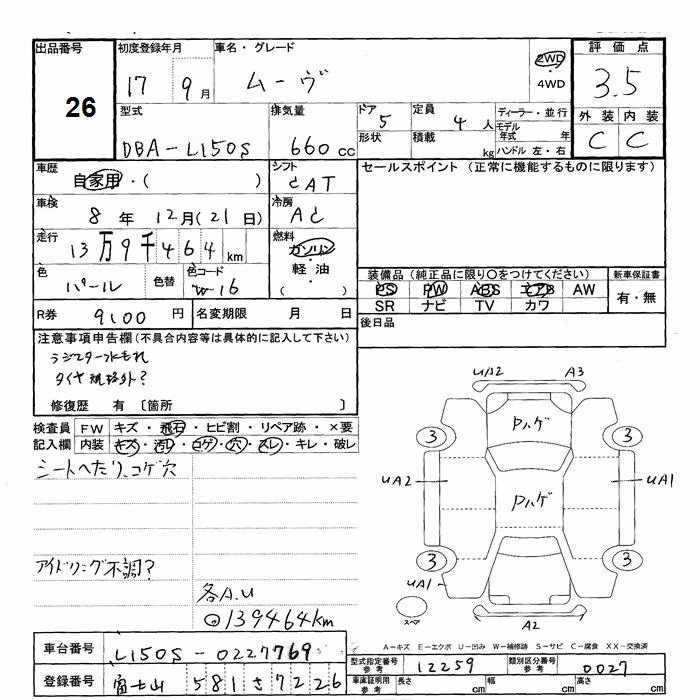 出品番号 26
初度登録年月 17 9月
車名・グレード ムーヴ
2WD・4WD
評価点 3.5
外装 C 内装 C
型式 DBA-L150S
排気量 660cc
ドア 5 定員 4人
形状 積載 kg
ディーラー・並行
モデル年式 年
ハンドル 左・右
車歴 自家用・( )
シフト CAT
セールスポイント (正常に機能するものに限ります)
車検 8年 12月(21日)
冷房 AC
走行 13万9千464km
燃料 ガソリン・軽油 ( )
色 パール 色替 色コード W-16
装備品 (純正品に限り〇をつけてください)
PS PW ABS エアB AW
SR ナビ TV カワ
新車保証書 有・無
R券 9100円 名変期限 月 日
後日品
注意事項申告欄(不具合内容等は具体的に記入して下さい)
ラジエター水もれ
タイヤ規格外?
修復歴 有 〔箇所 〕
検査員記入欄
FW キズ・飛石・ヒビ割・リペア跡・×要
内装 キズ・汚レ・コゲ・穴・スレ・キレ・破レ
シートへたり、コゲ穴
アイドリング不調?
各A.U
139464km
UA2 A3
Pハゲ
3 3
UA2 Pハゲ UA1
3 3
UA1
スペア
A2
A-キズ E-エクボ U-凹み W-補修跡 S-サビ C-腐食 XX-交換済
車台番号 L150S-0227769
型式指定番号 参考 12259 類別区分番号 参考 0027
登録番号 富士山 581 さ 7226
車庫証明用 参考 長さ cm 幅 cm 高さ cm